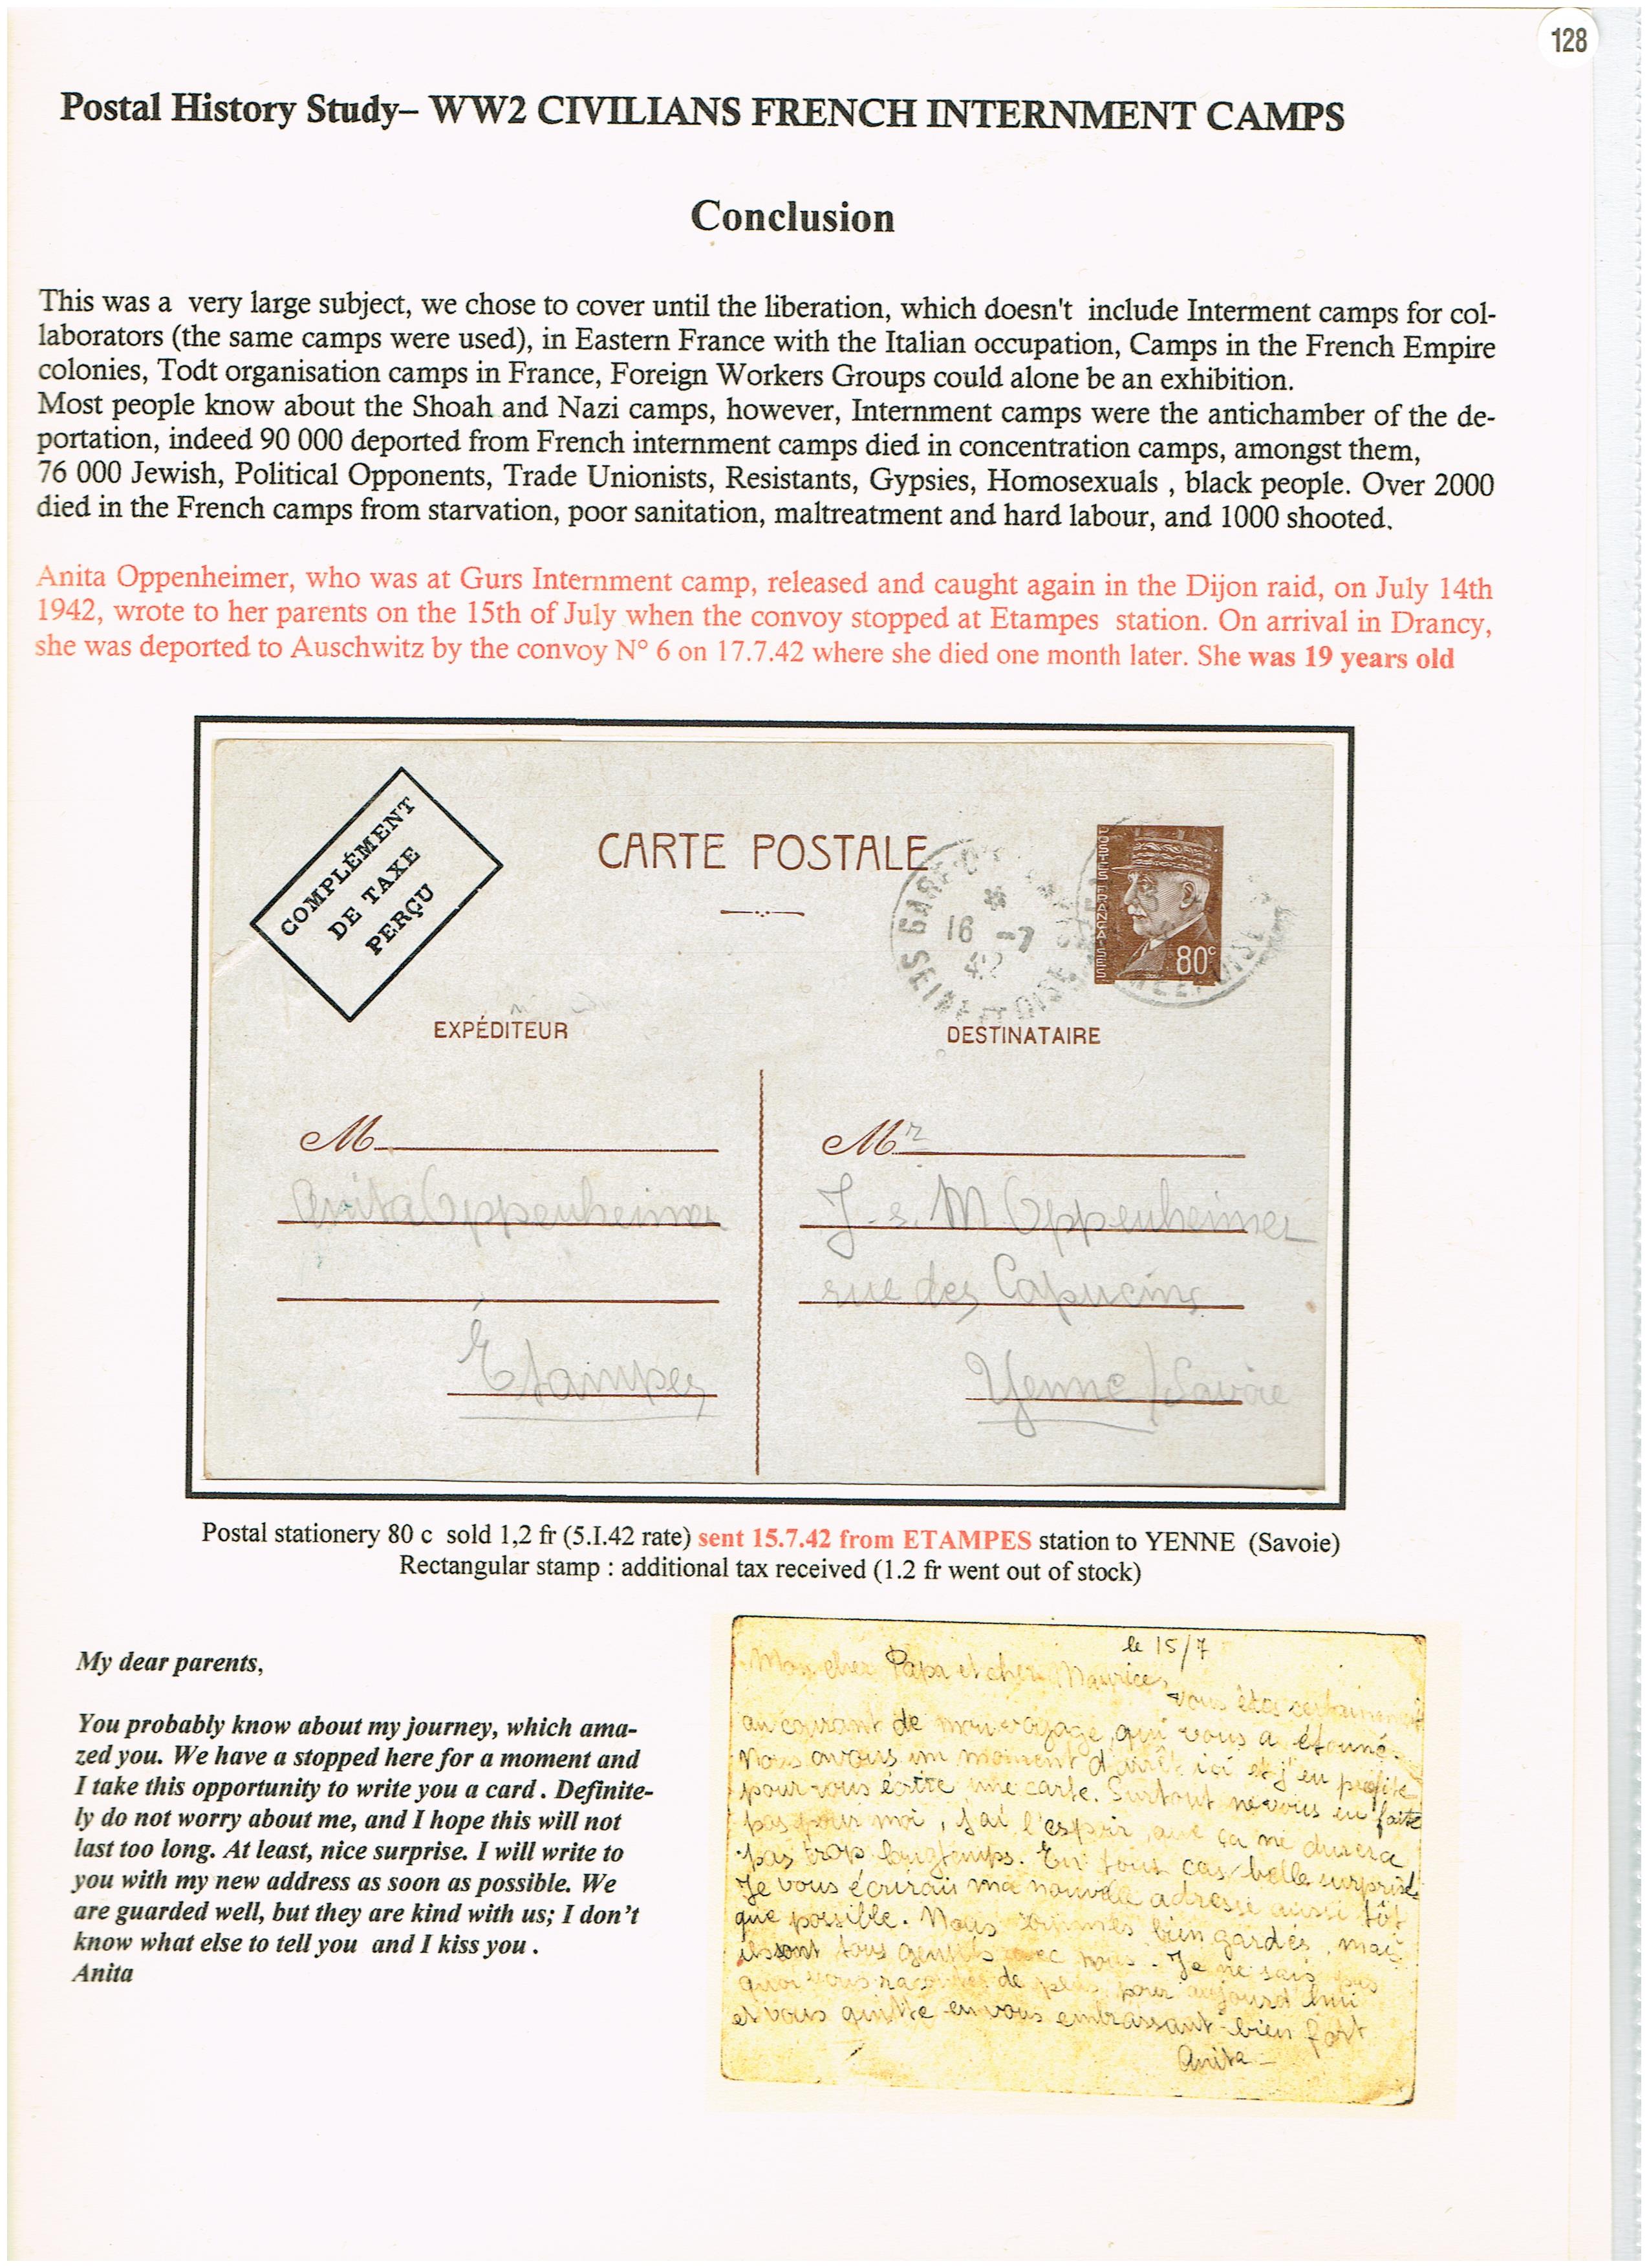 128
Postal History Study– WW2 CIVILIANS FRENCH INTERNMENT CAMPS
Conclusion
This was a very large subject, we chose to cover until the liberation, which doesn't include Interment camps for col-
laborators (the same camps were used), in Eastern France with the Italian occupation, Camps in the French Empire
colonies, Todt organisation camps in France, Foreign Workers Groups could alone be an exhibition.
Most people know about the Shoah and Nazi camps, however, Internment camps were the antichamber of the de-
portation, indeed 90 000 deported from French internment camps died in concentration camps, amongst them,
76 000 Jewish, Political Opponents, Trade Unionists, Resistants, Gypsies, Homosexuals , black people. Over 2000
died in the French camps from starvation, poor sanitation, maltreatment and hard labour, and 1000 shooted.
Anita Oppenheimer, who was at Gurs Internment camp, released and caught again in the Dijon raid, on July 14th
1942, wrote to her parents on the 15th of July when the convoy stopped at Etampes station. On arrival in Drancy,
she was deported to Auschwitz by the convoy N° 6 on 17.7.42 where she died one month later. She was 19 years old
COMPLÉMENT
DE TAXE
PERÇU
CARTE POSTALE
16 -7
42
SEINE ET OISE
POSTES FRANÇAISES
80c
EXPÉDITEUR
DESTINATAIRE
M
Mr
Anita Oppenheimer
J. e. M Oppenheimer
rue des Capucins
Étampes
Yenne / Savoie
Postal stationery 80 c sold 1,2 fr (5.I.42 rate) sent 15.7.42 from ETAMPES station to YENNE (Savoie)
Rectangular stamp : additional tax received (1.2 fr went out of stock)
My dear parents,
You probably know about my journey, which ama-
zed you. We have a stopped here for a moment and
I take this opportunity to write you a card . Definite-
ly do not worry about me, and I hope this will not
last too long. At least, nice surprise. I will write to
you with my new address as soon as possible. We
are guarded well, but they are kind with us; I don't
know what else to tell you and I kiss you .
Anita
le 15/7
Mon cher Papa et cher Maurice,
vous êtes certainement
au courant de mon voyage, qui vous a étonné.
Nous avons un moment d'arrêt ici et j'en profite
pour vous écrire une carte. Surtout ne vous en faite
pas pour moi, j'ai l'espoir que ça ne durera
pas trop longtemps. En tous cas, belle surprise.
Je vous écrirai ma nouvelle adresse aussi tôt
que possible. Nous sommes bien gardés, mais
ils sont tous gentils avec nous. Je ne sais pas
quoi vous raconter de plus pour aujourd'hui
et vous quitte en vous embrassant bien fort
Anita